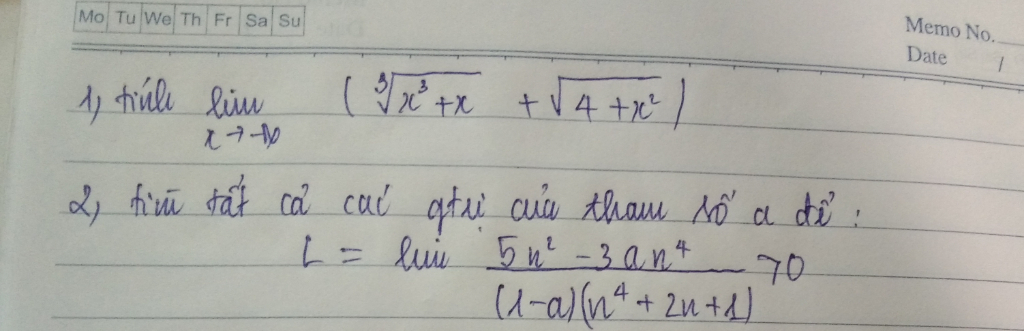 Mo Tu We Th Fr Sa Su
Memo No.
Date /
1, tính lim ( ∛(x³+x) + √(4+x²) )
x→-∞
2, tìm tất cả các gtrị của tham số a để :
L = lim (5n² - 3an⁴)/((1-a)(n⁴+2n+1)) >0